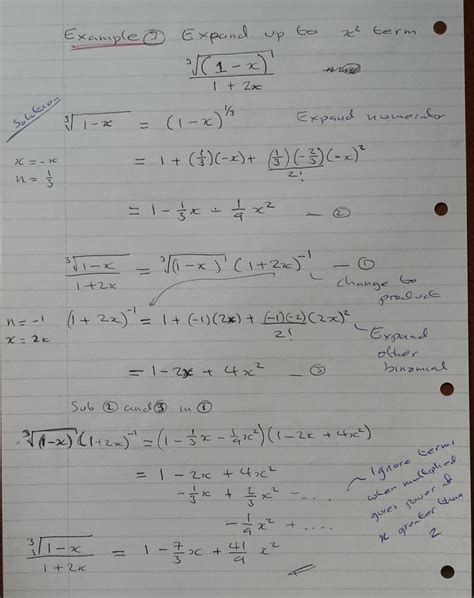 Example ① Expand up to x² term
∛(1-x) / (1+2x)
Solution
∛(1-x) = (1-x)^(1/3) Expand numerator
x = -x
n = 1/3
= 1 + (1/3)(-x) + (1/3)(-2/3)/2! (-x)²
= 1 - 1/3 x - 1/9 x² — ②
∛(1-x) / (1+2x) = ∛(1-x) (1+2x)⁻¹ — ①
change to product
n = -1
x = 2x
(1+2x)⁻¹ = 1 + (-1)(2x) + (-1)(-2)/2! (2x)²
Expand other binomial
= 1 - 2x + 4x² — ③
Sub ② and ③ in ①
∛(1-x) (1+2x)⁻¹ = (1 - 1/3 x - 1/9 x²)(1 - 2x + 4x²)
= 1 - 2x + 4x²
- 1/3 x + 2/3 x² - ....
- 1/9 x² + ....
Ignore terms
when multiplied
gives power of
x greater than
2
∛(1-x) / (1+2x) = 1 - 7/3 x + 41/9 x²